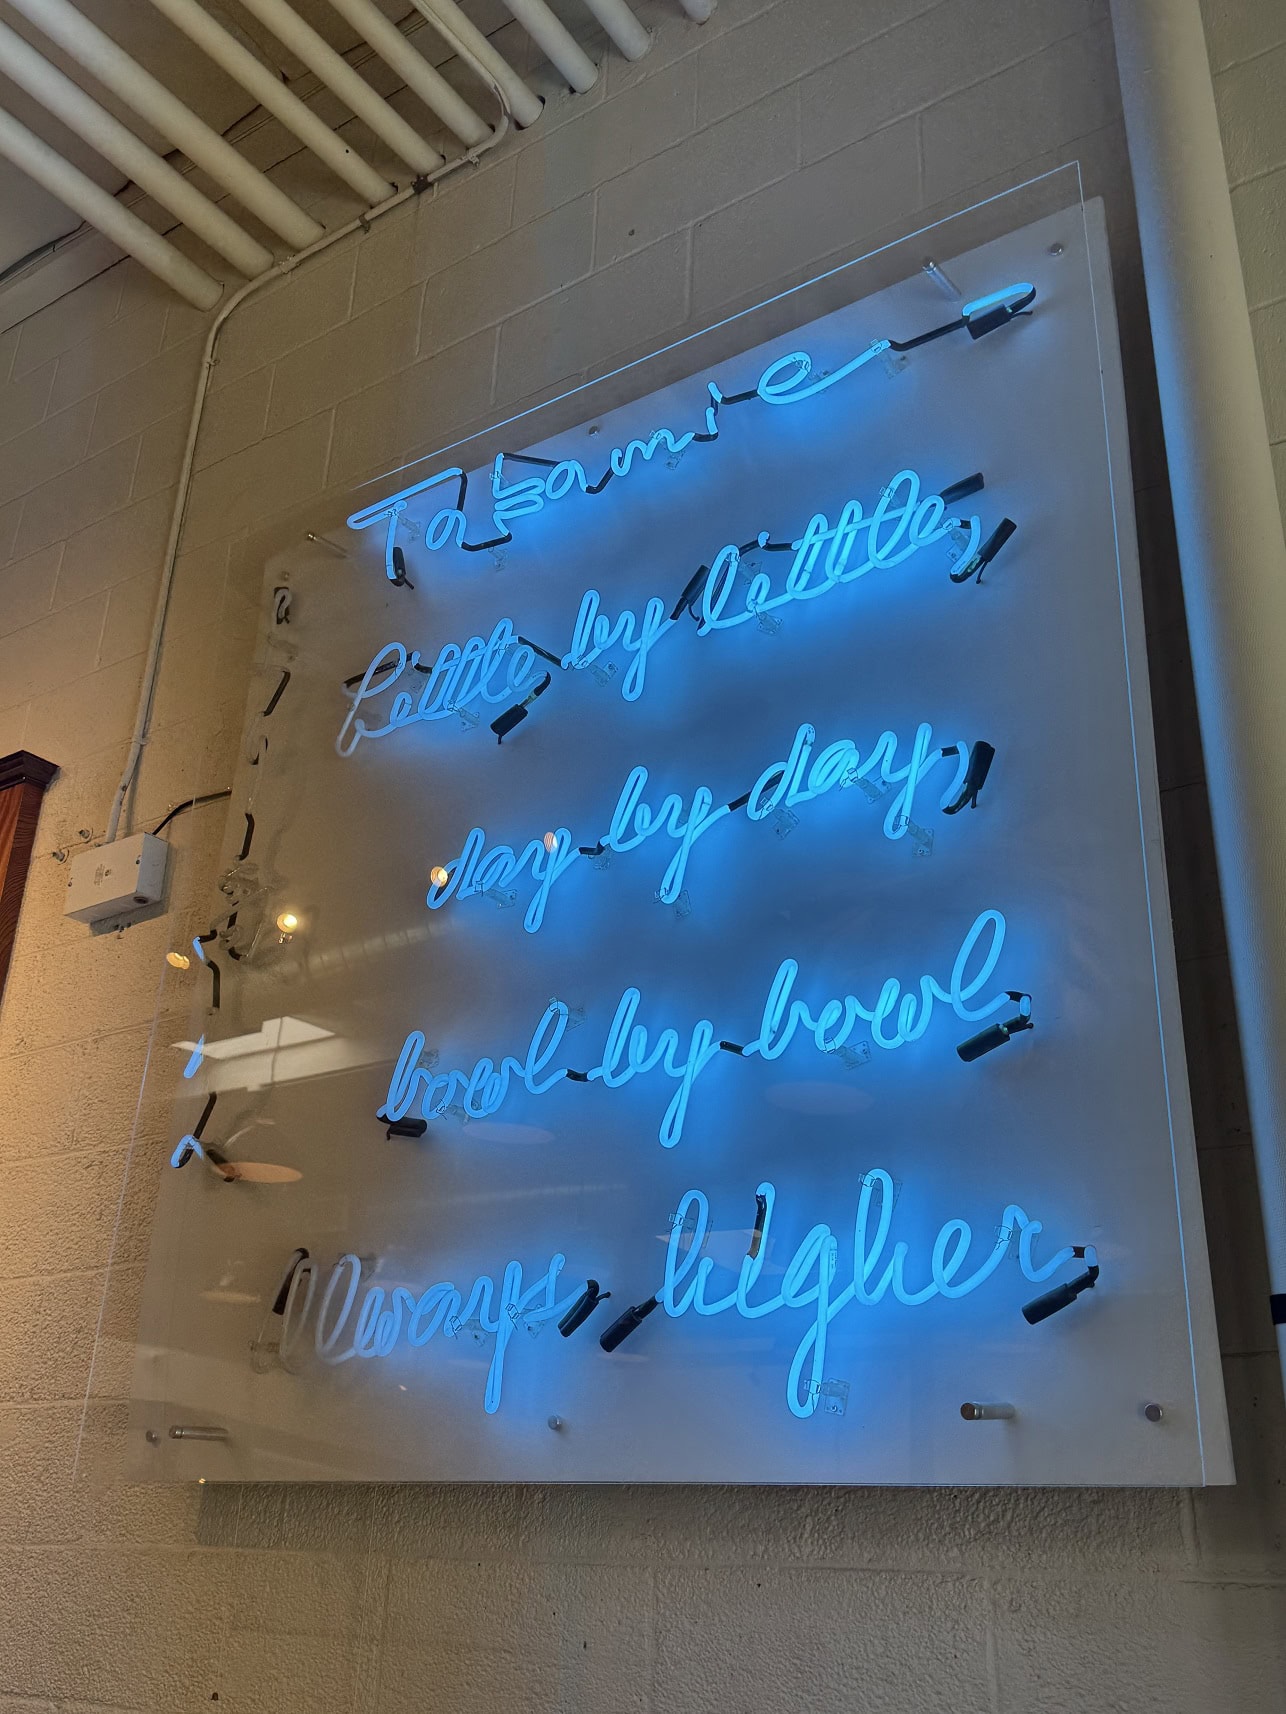 little by little,
day by day,
bowl by bowl
Always higher